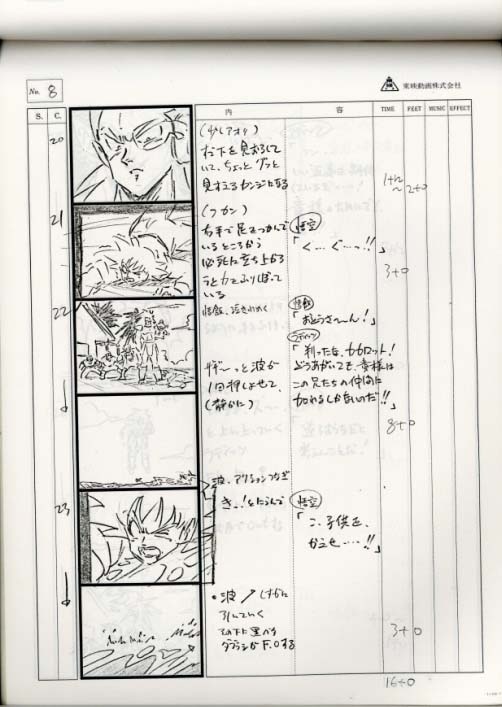 No. 8
東映動画株式会社
S. C. 内 容 TIME FEET MUSIC EFFECT
20
(少しアオリ)
右下を見おろして
いて、ちょっとグッと
見すえるカンジになる
2+0
21
(フカン)
右手で足をつかんで
いるところから
必死に立ち上がろ
うと力をふりしぼって
いる
悟空
「く…ぐ…っ!!」
3+0
22
悟飯、泣きわめく
悟飯
「おとうさ〜〜ん!」
ザザ〜っと波が
1回押しよせて、
(静かに)
「判ったな、カカロット!
どうあがいても、貴様は
この兄たちの仲間に
加わるしかないのだ!!」
8+0
波、アクションつなぎ
23
きっ!とにらんで
悟空
「こ、子供を、
かえせ……!!」
・波 しずかに
引いていく
F.Oする
3+0
16+0